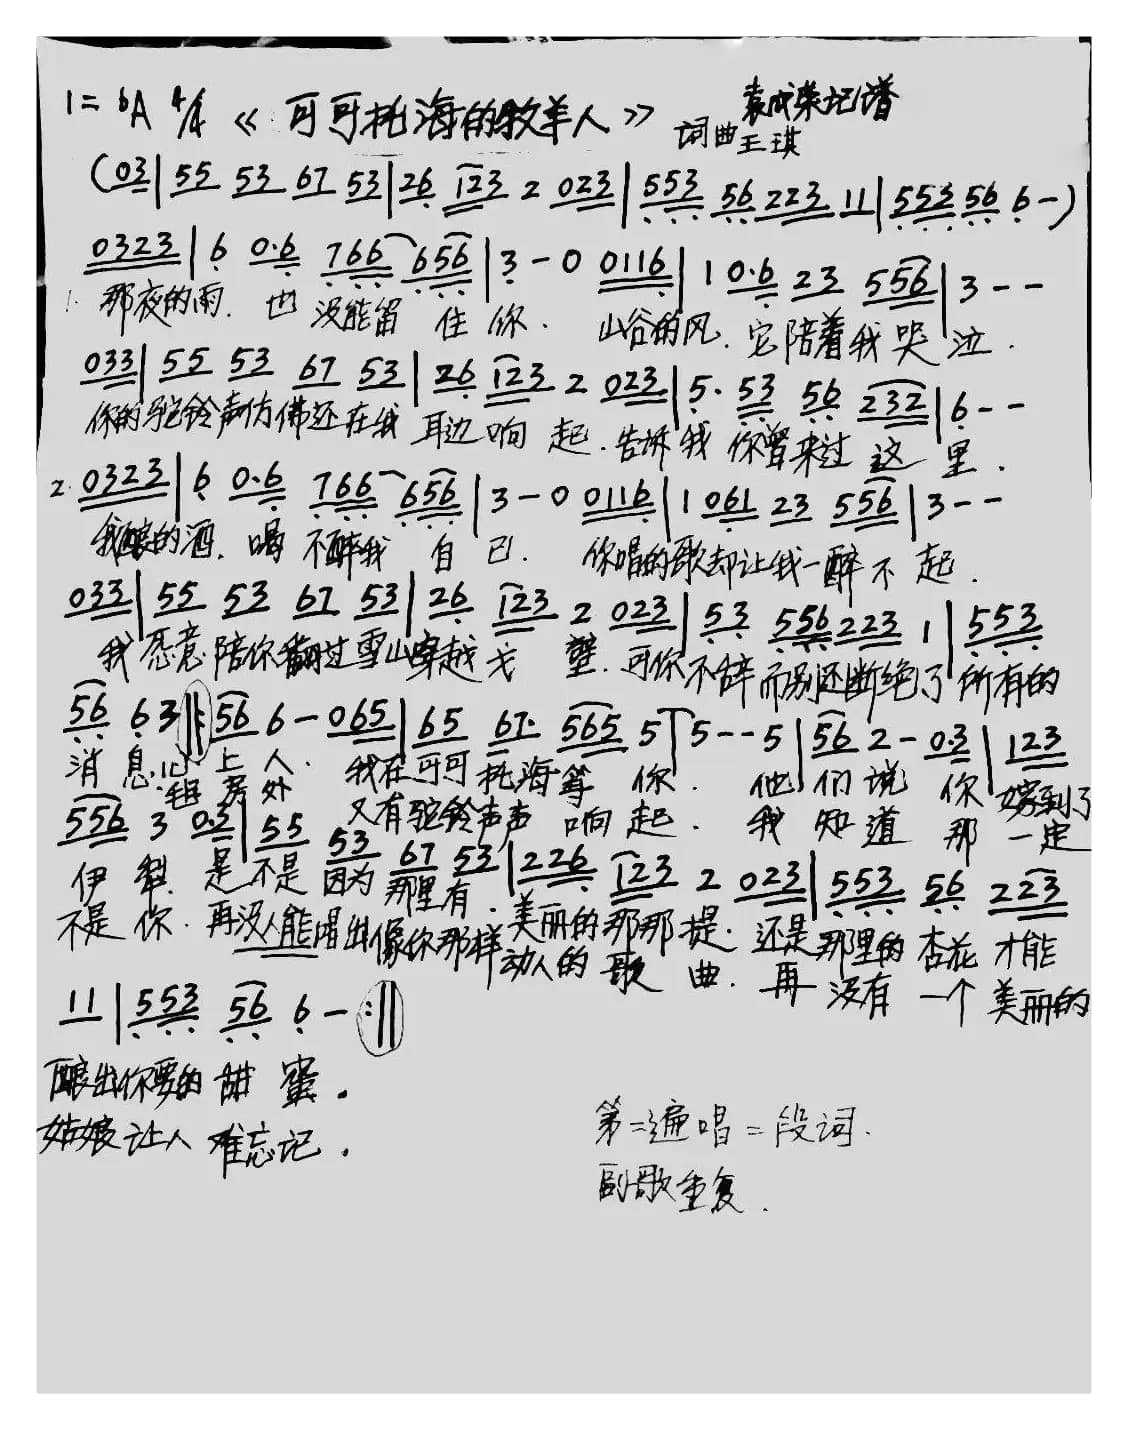 1=bA 4/4 《可可托海的牧羊人》 袁成荣记谱
词曲王琪
(03|55 53 67 53|26 123 2 023|553 56 223 11|553 56 6-)
0323|6 0·6 766 656|3-0 0116|1 0·6 23 556|3--
1. 那夜的雨. 也 没能留 住 你. 山谷的风. 它陪着我哭泣.
033|55 53 67 53|26 123 2 023|5· 53 56 232|6--
你的驼铃声仿佛还在我 耳边响 起. 告诉我 你曾来过 这 里.
2. 0323|6 0·6 766 656|3-0 0116|1 061 23 556|3--
我酿的酒. 喝 不醉我 自 己. 你唱的歌却让我一醉不起.
033|55 53 67 53|26 123 2 023|53 556 223 1|553
我愿意陪你翻过雪山穿越戈 壁. 可你不辞而别还断绝了所有的
56 6 3‖:56 6-065|65 67· 565 5|5--5|56 2-0·3|123
消 息. 心上人. 我在可可托海等 你. 他 们说 你 嫁到了
毡房外 又有驼铃声声 响起. 我 知道 那 一定
556 3 0·3|55 53 67 53|226 123 2 023|553 56 223
伊犁. 是不是因为那里有. 美丽的那那提. 还是那里的杏花 才能
不是你. 再没人能唱出像你那样动人的歌 曲. 再 没有 一个 美丽的
11|553 56 6-:‖
酿出你要的 甜 蜜.
姑娘让人 难忘记.
第二遍唱二段词.
副歌重复.